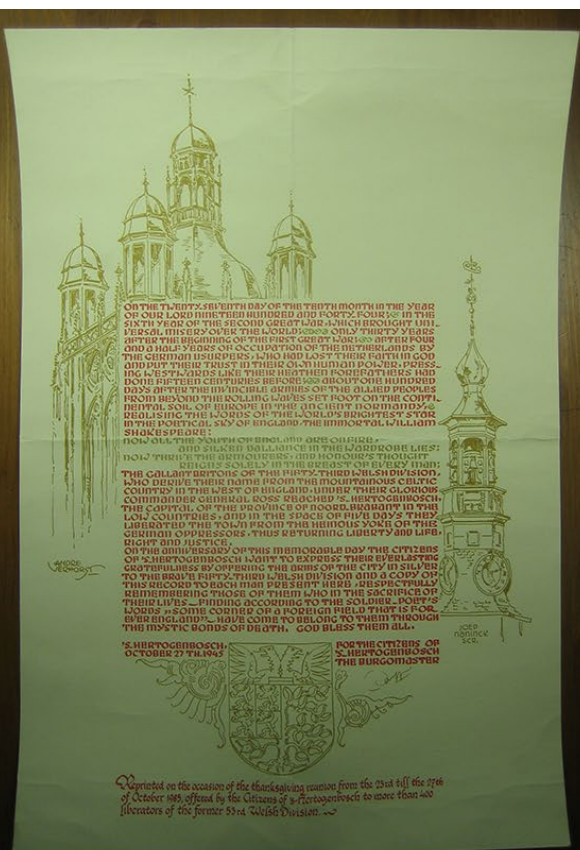 ON THE TWENTY-SEVENTH DAY OF THE TENTH MONTH IN THE YEAR
OF OUR LORD NINETEEN HUNDRED AND FORTY FOUR, IN THE
SIXTH YEAR OF THE SECOND GREAT WAR, WHICH BROUGHT UNI-
VERSAL MISERY OVER THE WORLD, ONLY THIRTY YEARS
AFTER THE BEGINNING OF THE FIRST GREAT WAR, AFTER FOUR
AND A HALF YEARS OF OCCUPATION OF THE NETHERLANDS BY
THE GERMAN USURPERS, WHO HAD LOST THEIR FAITH IN GOD
AND PUT THEIR TRUST IN THEIR OWN HUMAN POWER, PRESS-
ING WESTWARDS LIKE THEIR HEATHEN FOREFATHERS HAD
DONE FIFTEEN CENTURIES BEFORE, ABOUT ONE HUNDRED
DAYS AFTER THE INVINCIBLE ARMIES OF THE ALLIED PEOPLES
FROM BEYOND THE ROLLING WAVES SET FOOT ON THE CONTI-
NENTAL SOIL OF EUROPE IN THE ANCIENT NORMANDY,
REALISING THE WORDS OF THE WORLD'S BRIGHTEST STAR
IN THE POETICAL SKY OF ENGLAND, THE IMMORTAL WILLIAM
SHAKESPEARE:
NOW ALL THE YOUTH OF ENGLAND ARE ON FIRE,
AND SILKEN DALLIANCE IN THE WARDROBE LIES;
NOW THRIVE THE ARMOURERS, AND HONOUR'S THOUGHT
REIGNS SOLELY IN THE BREAST OF EVERY MAN;
THE GALLANT BRITONS OF THE FIFTY-THIRD WELSH DIVISION,
WHO DERIVE THEIR NAME FROM THE MOUNTAINOUS CELTIC
COUNTRY IN THE WEST OF ENGLAND, UNDER THEIR GLORIOUS
COMMANDER GENERAL ROSS REACHED 'S-HERTOGENBOSCH,
THE CAPITAL OF THE PROVINCE OF NOORD-BRABANT IN THE
LOW COUNTRIES, AND IN THE SPACE OF FIVE DAYS THEY
LIBERATED THE TOWN FROM THE HEINOUS YOKE OF THE
GERMAN OPPRESSORS, THUS RETURNING LIBERTY AND LIFE,
RIGHT AND JUSTICE.
ON THE ANNIVERSARY OF THIS MEMORABLE DAY THE CITIZENS
OF 'S-HERTOGENBOSCH WANT TO EXPRESS THEIR EVERLASTING
GRATEFULNESS BY OFFERING THE ARMS OF THE CITY IN SILVER
TO THE BRAVE FIFTY-THIRD WELSH DIVISION AND A COPY OF
THIS RECORD TO EACH MAN PRESENT HERE, RESPECTFULLY
REMEMBERING THOSE OF THEM WHO IN THE SACRIFICE OF
THEIR LIVES - FINDING ACCORDING TO THE SOLDIER-POET'S
WORDS "SOME CORNER OF A FOREIGN FIELD THAT IS FOR
EVER ENGLAND" - HAVE COME TO BELONG TO THEM THROUGH
THE MYSTIC BONDS OF DEATH. GOD BLESS THEM ALL.
ANDRE
VERHORST
JOEP
NANINCK
SCR.
'S-HERTOGENBOSCH,
OCTOBER 27TH. 1945
FOR THE CITIZENS OF
'S-HERTOGENBOSCH
THE BURGOMASTER
Reprinted on the occasion of the thanksgiving reunion from the 23rd till the 27th
of October 1985, offered by the Citizens of 's-Hertogenbosch to more than 400
liberators of the former 53rd Welsh Division.